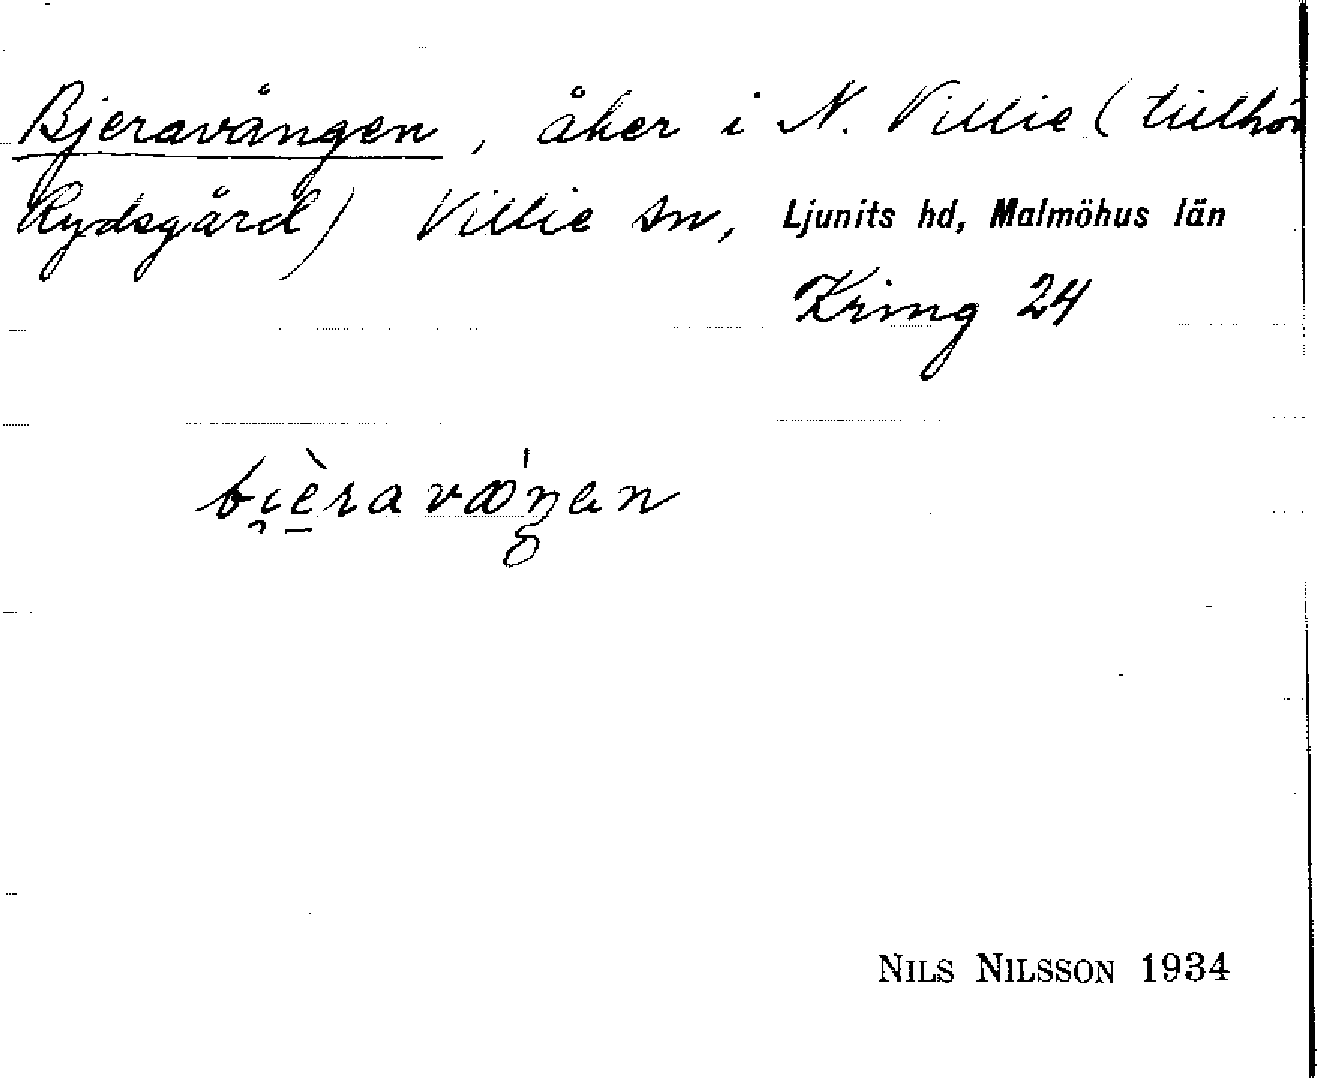 Bjeravången, åker i N. Villie (tillhör
Rydsgård) Villie sn, Ljunits hd, Malmöhus län
Kring 24
bi̯è̱ravǿŋen
NILS NILSSON 1934